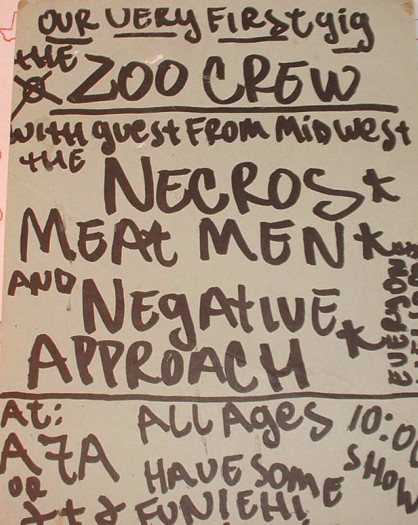 OUR VERY FIRST gig
THE
ZOO CREW
WITH guest FROM MIDWEST
THE
NECROS*
MEAt MEN*
AND
NEgAtIVE
APPROACH *
EVERYONE
At:
A7A
OR
ALL Ages
HAVE SOME
FUN! EH!
10:00
SHOW